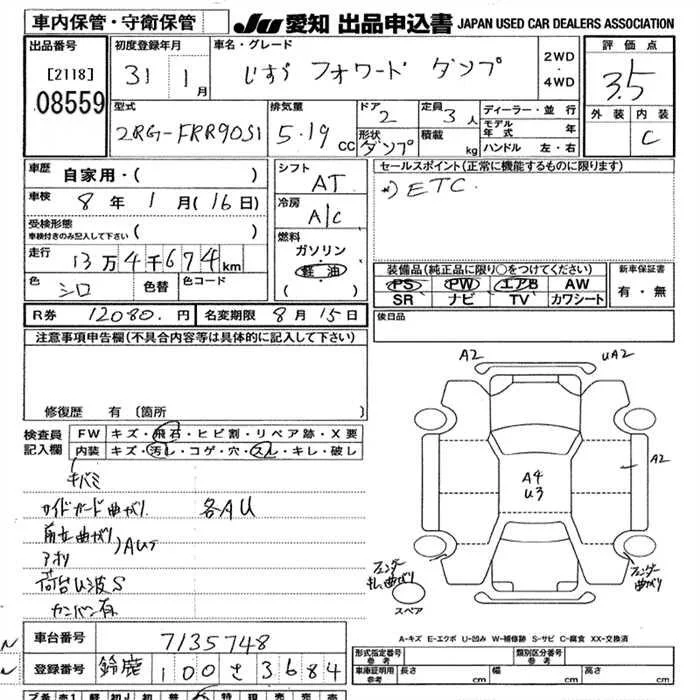 車内保管・守衛保管 JU 愛知 出品申込書 JAPAN USED CAR DEALERS ASSOCIATION
出品番号 初度登録年月 車名・グレード 2WD・4WD 評価点
[2118] 31 1月 いすゞ フォワード ダンプ 3.5
08559
型式 排気量 ドア 2 定員 3人 ディーラー・並行 外装 内装
2RG-FRR90S1 5.19 CC 形状 ダンプ 積載 kg モデル年式 年 C
ハンドル 左・右
車歴 自家用・( ) シフト AT セールスポイント(正常に機能するものに限ります)
車検 8年1月(16日) 冷房 A/C ETC.
受検形態 車検付きのみ記入して下さい ( ) 燃料 ガソリン
走行 13万4千674km 軽油
色 シロ 色替 色コード ( )
装備品(純正品に限り○をつけてください) 新車保証書
PS PW エアB AW 有・無
SR ナビ TV カワシート
R券 12080.円 名変期限 8月15日 後日品
注意事項申告欄(不具合内容等は具体的に記入して下さい)
修復歴 有 〔箇所 〕
検査員記入欄 FW キズ・飛石・ヒビ割・リペア跡・X要
内装 キズ・汚レ・コゲ・穴・スレ・キレ・破し
キバミ
サイドガード曲がり. 各AU
前立曲がり
アオリ
荷台U波S
カンバン有
A2 UA2
A2
A4
U3
フェンダー
キレ曲がり
フェンダー
曲がり
スペア
A-キズ E-エクボ U-凹み W-補修跡 S-サビ C-腐食 XX-交換済
車台番号 7135748
登録番号 鈴鹿 100 さ 3684
形式指定番号 参考 類別区分番号 参考
車庫証明用 参考 長さ cm 幅 cm 高さ cm